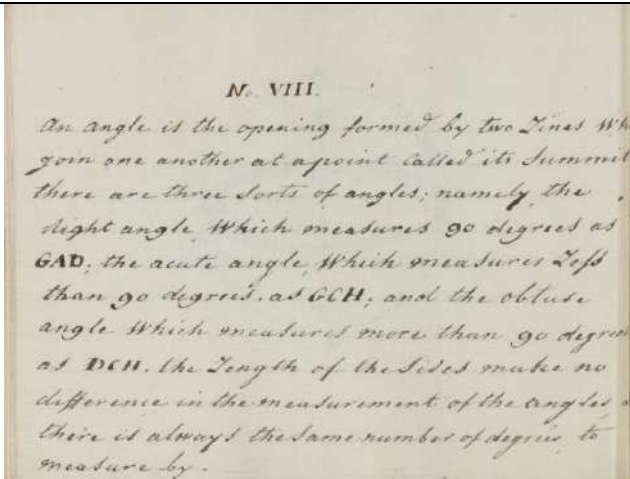 No. VIII.
An angle is the opening formed by two Lines Wh
join one another at a point Called its Summit
there are three Sorts of angles; namely the
Right angle Which measures 90 degrees as
GAD; the acute angle, Which measures Less
than 90 degrees. as GCH; and the obtuse
angle Which measures more than 90 degrees
as DCH. the Length of the Sides make no
difference in the measurement of the angles
there is always the Same number of degrees to
measure by.